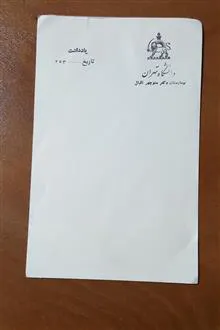 دانشگاه تهران
بیمارستان دکتر منوچهر اقبال
یادداشت
تاریخ ــــــــ ۲۵۳